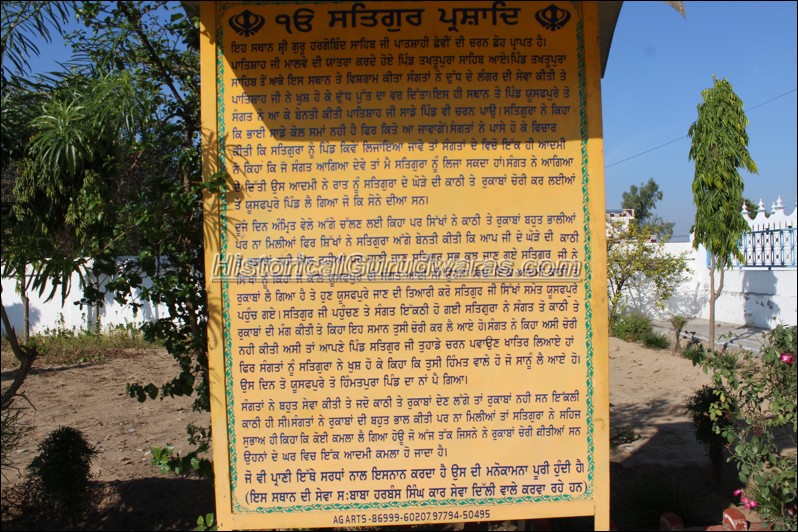 ੴ ਸਤਿਗੁਰ ਪ੍ਰਸ਼ਾਦਿ
ਇਹ ਸਥਾਨ ਸ਼੍ਰੀ ਗੁਰੂ ਹਰਗੋਬਿੰਦ ਸਾਹਿਬ ਜੀ ਪਾਤਸ਼ਾਹੀ ਛੇਵੀਂ ਦੀ ਚਰਨ ਛੋਹ ਪ੍ਰਾਪਤ ਹੈ।
ਪਾਤਿਸ਼ਾਹ ਜੀ ਮਾਲਵੇ ਦੀ ਯਾਤਰਾ ਕਰਦੇ ਹੋਏ ਪਿੰਡ ਤਖਤੂਪੁਰਾ ਸਾਹਿਬ ਆਏ।ਪਿੰਡ ਤਖਤੂਪੁਰਾ
ਸਾਹਿਬ ਤੋਂ ਆਕੇ ਇਸ ਸਥਾਨ ਤੇ ਵਿਸ਼ਰਾਮ ਕੀਤਾ ਸੰਗਤਾਂ ਨੇ ਦੁੱਧ ਦੇ ਲੰਗਰ ਦੀ ਸੇਵਾ ਕੀਤੀ ਤੇ
ਪਾਤਿਸ਼ਾਹ ਜੀ ਨੇ ਖੁਸ਼ ਹੋ ਕੇ ਦੁੱਧ ਪੁੱਤ ਦਾ ਵਰ ਦਿੱਤਾ।ਇਸ ਹੀ ਸਥਾਨ ਤੇ ਪਿੰਡ ਯੂਸਫਪੁਰੇ ਤੋਂ
ਸੰਗਤ ਨੇ ਆ ਕੇ ਬੇਨਤੀ ਕੀਤੀ ਪਾਤਿਸ਼ਾਹ ਜੀ ਸਾਡੇ ਪਿੰਡ ਵੀ ਚਰਨ ਪਾਉ। ਸਤਿਗੁਰਾ ਨੇ ਕਿਹਾ
ਕਿ ਭਾਈ ਸਾਡੇ ਕੋਲ ਸਮਾਂ ਨਹੀ ਹੈ ਫਿਰ ਕਿਤੇ ਆ ਜਾਵਾਂਗੇ।ਸੰਗਤਾਂ ਨੇ ਪਾਸੇ ਹੋ ਕੇ ਵਿਚਾਰ
ਕੀਤੀ ਕਿ ਸਤਿਗੁਰਾ ਨੂੰ ਪਿੰਡ ਕਿਵੇਂ ਲਿਜਾਇਆ ਜਾਵੇ ਤਾਂ ਸੰਗਤਾਂ ਦੇ ਵਿਚੋ ਇੱਕ ਹੀ ਆਦਮੀ
ਨੇ ਕਿਹਾ ਕਿ ਜੇ ਸੰਗਤ ਆਗਿਆ ਦੇਵੇ ਤਾਂ ਮੈ ਸਤਿਗੁਰਾ ਨੂੰ ਲਿਜਾ ਸਕਦਾ ਹਾਂ।ਸੰਗਤ ਨੇ ਆਗਿਆ
ਦੇ ਦਿੱਤੀ ਉਸ ਆਦਮੀ ਨੇ ਰਾਤ ਨੂੰ ਸਤਿਗੁਰਾ ਦੇ ਘੋੜੇ ਦੀ ਕਾਠੀ ਤੇ ਰੁਕਾਬਾਂ ਚੋਰੀ ਕਰ ਲਈਆਂ
ਤੇ ਯੂਸਫਪੁਰੇ ਪਿੰਡ ਲੈ ਗਿਆ ਜੋ ਕਿ ਸੋਨੇ ਦੀਆ ਸਨ।
ਦੂਜੇ ਦਿਨ ਅੰਮ੍ਰਿਤ ਵੇਲੇ ਅੱਗੇ ਚੱਲਣ ਲਈ ਕਿਹਾ ਪਰ ਸਿੱਖਾਂ ਨੇ ਕਾਠੀ ਤੇ ਰੁਕਾਬਾਂ ਬਹੁਤ ਭਾਲੀਆਂ
ਪਰ ਨਾ ਮਿਲੀਆਂ ਫਿਰ ਸਿੱਖਾਂ ਨੇ ਸਤਿਗੁਰਾ ਅੱਗੇ ਬੇਨਤੀ ਕੀਤੀ ਕਿ ਆਪ ਜੀ ਦੇ ਘੋੜੇ ਦੀ ਕਾਠੀ
ਸਤਿਗੁਰ ਜੀ ਨੇ
HistoricalGurudwaras.com
ਰੁਕਾਬਾਂ ਲੈ ਗਿਆ ਹੈ ਤੇ ਹੁਣ ਯੂਸਫਪੁਰੇ ਜਾਣ ਦੀ ਤਿਆਰੀ ਕਰੋ ਸਤਿਗੁਰ ਜੀ ਸਿੱਖਾਂ ਸਮੇਤ ਯੂਸਫਪੁਰੇ
ਪਹੁੰਚ ਗਏ। ਸਤਿਗੁਰ ਜੀ ਪਹੁੰਚਣ ਤੇ ਸੰਗਤ ਇਕੱਠੀ ਹੋ ਗਈ ਸਤਿਗੁਰਾ ਨੇ ਸੰਗਤ ਤੋਂ ਕਾਠੀ ਤੇ
ਰੁਕਾਬਾਂ ਦੀ ਮੰਗ ਕੀਤੀ ਤੇ ਕਿਹਾ ਇਹ ਸਮਾਨ ਤੁਸੀ ਚੋਰੀ ਕਰ ਲੈ ਆਏ ਹੋ।ਸੰਗਤ ਨੇ ਕਿਹਾ ਅਸੀ ਚੋਰੀ
ਨਹੀ ਕੀਤੀ ਅਸੀ ਤਾਂ ਆਪਣੇ ਪਿੰਡ ਸਤਿਗੁਰ ਜੀ ਤੁਹਾਡੇ ਚਰਨ ਪਵਾਉਣ ਖਾਤਿਰ ਲਿਆਏ ਹਾਂ
ਫਿਰ ਸੰਗਤਾਂ ਨੂੰ ਸਤਿਗੁਰਾ ਨੇ ਖੁਸ਼ ਹੋ ਕੇ ਕਿਹਾ ਕਿ ਤੁਸੀ ਹਿੰਮਤ ਵਾਲੇ ਹੋ ਜੋ ਸਾਨੂੰ ਲੈ ਆਏ ਹੋ।
ਉਸ ਦਿਨ ਤੋ ਯੂਸਫਪੁਰੇ ਤੋ ਹਿੰਮਤਪੁਰਾ ਪਿੰਡ ਦਾ ਨਾਂ ਪੈ ਗਿਆ।
ਸੰਗਤਾਂ ਨੇ ਬਹੁਤ ਸੇਵਾ ਕੀਤੀ ਤੇ ਜਦੋ ਕਾਠੀ ਤੇ ਰੁਕਾਬਾਂ ਦੇਣ ਲੱਗੇ ਤਾਂ ਰੁਕਾਬਾਂ ਨਹੀ ਸਨ ਇਕੱਲੀ
ਕਾਠੀ ਹੀ ਸੀ।ਸੰਗਤਾਂ ਨੇ ਰੁਕਾਬਾਂ ਦੀ ਬਹੁਤ ਭਾਲ ਕੀਤੀ ਪਰ ਨਾ ਮਿਲੀਆਂ ਤਾਂ ਸਤਿਗੁਰਾ ਨੇ ਸਹਿਜ
ਸੁਭਾਅ ਹੀ ਕਿਹਾ ਕਿ ਕੋਈ ਕਮਲਾ ਲੈ ਗਿਆ ਹੋਊ ਜੋ ਅੱਜ ਤੱਕ ਜਿਸਨੇ ਨੇ ਰੁਕਾਬਾਂ ਚੋਰੀ ਕੀਤੀਆਂ ਸਨ
ਉਹਨਾਂ ਦੇ ਘਰ ਵਿਚ ਇੱਕ ਆਦਮੀ ਕਮਲਾ ਹੋ ਜਾਂਦਾ ਹੈ।
ਜੋ ਵੀ ਪ੍ਰਾਣੀ ਇੱਥੇ ਸਰਧਾਂ ਨਾਲ ਇਸਨਾਨ ਕਰਦਾ ਹੈ ਉਸ ਦੀ ਮਨੋਕਾਮਨਾ ਪੂਰੀ ਹੁੰਦੀ ਹੈ।
(ਇਸ ਸਥਾਨ ਦੀ ਸੇਵਾ ਸ:ਬਾਬਾ ਹਰਬੰਸ ਸਿੰਘ ਕਾਰ ਸੇਵਾ ਦਿੱਲੀ ਵਾਲੇ ਕਰਵਾ ਰਹੇ ਹਨ)
AG ARTS-86999-60207.97794-50495